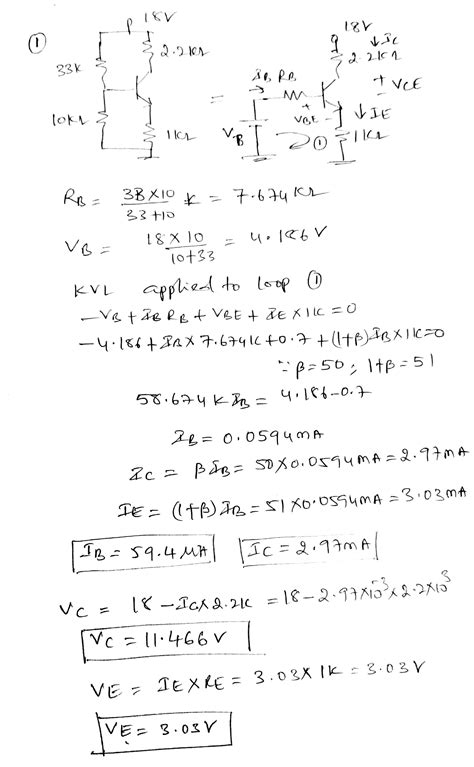 ① 18V 18V
33K 2.2KΩ ↓IC 2.2KΩ
IB RB + VCE
10KΩ = VBE ↓IE
1KΩ VB ① 1KΩ
RB = 33×10 / 33+10 K = 7.674KΩ
VB = 18×10 / 10+33 = 4.186V
KVL applied to loop ①
-VB + IBRB + VBE + IE×1K=0
-4.186+IB×7.674K+0.7+(1+β)IB×1K=0
∵ β=50; 1+β=51
58.674K IB = 4.186-0.7
IB = 0.0594mA
IC = βIB = 50×0.0594mA=2.97mA
IE = (1+β)IB=51×0.0594mA=3.03mA
IB = 59.4μA IC = 2.97mA
VC = 18-IC×2.2K =18-2.97×10⁻³×2.2×10³
VC = 11.466V
VE = IE×RE = 3.03×1K = 3.03V
VE = 3.03V